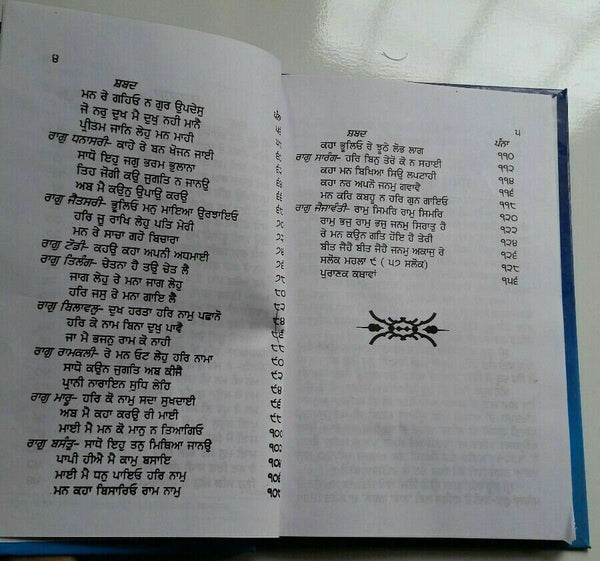 ੪
ਸ਼ਬਦ
ਮਨ ਰੇ ਗਹਿਓ ਨ ਗੁਰ ਉਪਦੇਸੁ
ਜੋ ਨਰੁ ਦੁਖ ਮੈ ਦੁਖੁ ਨਹੀ ਮਾਨੈ
ਪ੍ਰੀਤਮ ਜਾਨਿ ਲੇਹੁ ਮਨ ਮਾਹੀ
ਰਾਗੁ ਧਨਾਸਰੀ- ਕਾਹੇ ਰੇ ਬਨ ਖੋਜਨ ਜਾਈ
ਸਾਧੋ ਇਹੁ ਜਗੁ ਭਰਮ ਭੁਲਾਨਾ
ਤਿਹ ਜੋਗੀ ਕਉ ਜੁਗਤਿ ਨ ਜਾਨਉ
ਅਬ ਮੈ ਕਉਨੁ ਉਪਾਉ ਕਰਉ
ਰਾਗੁ ਜੈਤਸਰੀ- ਭੂਲਿਓ ਮਨੁ ਮਾਇਆ ਉਰਝਾਇਓ
ਹਰਿ ਜੂ ਰਾਖਿ ਲੇਹੁ ਪਤਿ ਮੇਰੀ
ਮਨ ਰੇ ਸਾਚਾ ਗਹੋ ਬਿਚਾਰਾ
ਰਾਗੁ ਟੋਡੀ- ਕਹਉ ਕਹਾ ਅਪਨੀ ਅਧਮਾਈ
ਰਾਗੁ ਤਿਲੰਗ- ਚੇਤਨਾ ਹੈ ਤਉ ਚੇਤ ਲੈ
ਜਾਗ ਲੇਹੁ ਰੇ ਮਨਾ ਜਾਗ ਲੇਹੁ
ਹਰਿ ਜਸੁ ਰੇ ਮਨਾ ਗਾਇ ਲੈ ੮੦
ਰਾਗੁ ਬਿਲਾਵਲੁ- ਦੁਖ ਹਰਤਾ ਹਰਿ ਨਾਮੁ ਪਛਾਨੋ
ਹਰਿ ਕੇ ਨਾਮ ਬਿਨਾ ਦੁਖੁ ਪਾਵੈ ੮੪
ਜਾ ਮੈ ਭਜਨੁ ਰਾਮ ਕੋ ਨਾਹੀ
ਰਾਗੁ ਰਾਮਕਲੀ- ਰੇ ਮਨ ਓਟ ਲੇਹੁ ਹਰਿ ਨਾਮਾ
ਸਾਧੋ ਕਉਨ ਜੁਗਤਿ ਅਬ ਕੀਜੈ
ਪ੍ਰਾਨੀ ਨਾਰਾਇਨ ਸੁਧਿ ਲੇਹਿ ੯੪
ਰਾਗੁ ਮਾਰੂ- ਹਰਿ ਕੋ ਨਾਮੁ ਸਦਾ ਸੁਖਦਾਈ ੯੬
ਅਬ ਮੈ ਕਹਾ ਕਰਉ ਰੀ ਮਾਈ ੯੮
ਮਾਈ ਮੈ ਮਨ ਕੋ ਮਾਨੁ ਨ ਤਿਆਗਿਓ ੧੦੦
ਰਾਗੁ ਬਸੰਤੁ- ਸਾਧੋ ਇਹੁ ਤਨੁ ਮਿਥਿਆ ਜਾਨਉ ੧੦੨
ਪਾਪੀ ਹੀਐ ਮੈ ਕਾਮੁ ਬਸਾਇ
ਮਾਈ ਮੈ ਧਨੁ ਪਾਇਓ ਹਰਿ ਨਾਮੁ
ਮਨ ਕਹਾ ਬਿਸਾਰਿਓ ਰਾਮ ਨਾਮੁ
੫
ਸ਼ਬਦ ਪੰਨਾ
ਕਹਾ ਭੂਲਿਓ ਰੇ ਝੂਠੇ ਲੋਭ ਲਾਗ ੧੧੦
ਰਾਗੁ ਸਾਰੰਗ- ਹਰਿ ਬਿਨੁ ਤੇਰੋ ਕੋ ਨ ਸਹਾਈ ੧੧੨
ਕਹਾ ਮਨ ਬਿਖਿਆ ਸਿਉ ਲਪਟਾਹੀ ੧੧੪
ਕਹਾ ਨਰ ਅਪਨੋ ਜਨਮੁ ਗਵਾਵੈ ੧੧੬
ਮਨ ਕਰਿ ਕਬਹੂ ਨ ਹਰਿ ਗੁਨ ਗਾਇਓ ੧੧੮
ਰਾਗੁ ਜੈਜਾਵੰਤੀ- ਰਾਮੁ ਸਿਮਰਿ ਰਾਮੁ ਸਿਮਰਿ ੧੨੦
ਰਾਮੁ ਭਜੁ ਰਾਮੁ ਭਜੁ ਜਨਮੁ ਸਿਰਾਤੁ ਹੈ ੧੨੨
ਰੇ ਮਨ ਕਉਨ ਗਤਿ ਹੋਇ ਹੈ ਤੇਰੀ ੧੨੪
ਬੀਤ ਜੈਹੈ ਬੀਤ ਜੈਹੈ ਜਨਮੁ ਅਕਾਜੁ ਰੇ ੧੨੬
ਸਲੋਕ ਮਹਲਾ ੯ (੫੭ ਸਲੋਕ) ੧੨੮
ਪੁਰਾਣਕ ਕਥਾਵਾਂ ੧੫੬